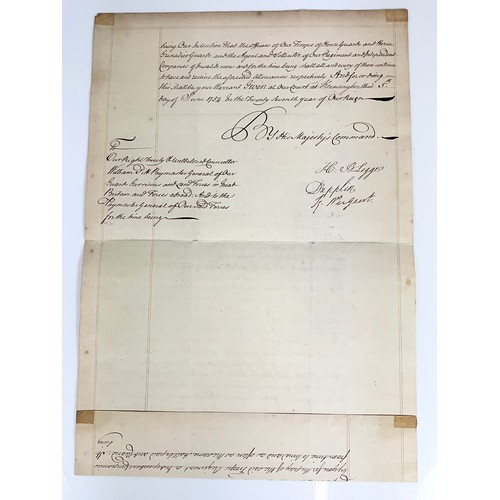 being Our Intention that the Officers of Our Troops of Horse Guards and Horse
Grenadier Guards and the Agents and Sollicitors of Our Regiments and Independent
Companies of Invalids now and for the time being shall all and every of them intitled
to have and receive the aforesaid allowances respectively And for so doing
this shall be your Warrant Given at Our Court at Kensington this 5th
day of June 1754 In the Twenty Seventh year of Our Reign
By His Majesty's Command
To
Our Right Trusty & Wellbeloved Councillor
William Pitt Paymaster General of Our
Guards Garrisons and Land Forces in Great
Britain and Forces abroad; And to the
Paymaster General of Our said Forces
for the time being
H. B. Legge
Dupplin
R. Nugent